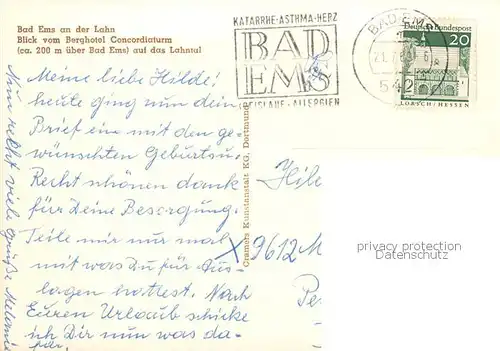 Bad Ems an der Lahn
Blick vom Berghotel Concordiaturm
(ca. 200 m über Bad Ems) auf das Lahntal
KATARRHE-ASTHMA-HERZ
BAD
EMS
KREISLAUF-ALLERGIEN
BAD EMS
21.7.6
542
Deutsche Bundespost
20
LORSCH/HESSEN
Meine liebe Hilde!
heute ging nun dein
Brief ein mit den ge-
wünschten Geburtsu.
Recht schönen dank
für Deine Besorgung.
Teile mir nur mal
mit was Du für Aus-
lagen hattest. Nach
Euren Urlaub schicke
ich Dir nun was da-
für.
Nun recht viele grüße Melanie
Cramers Kunstanstalt KG, Dortmund
Hil
x 9612 M
Pe
privacy protection
Datenschutz